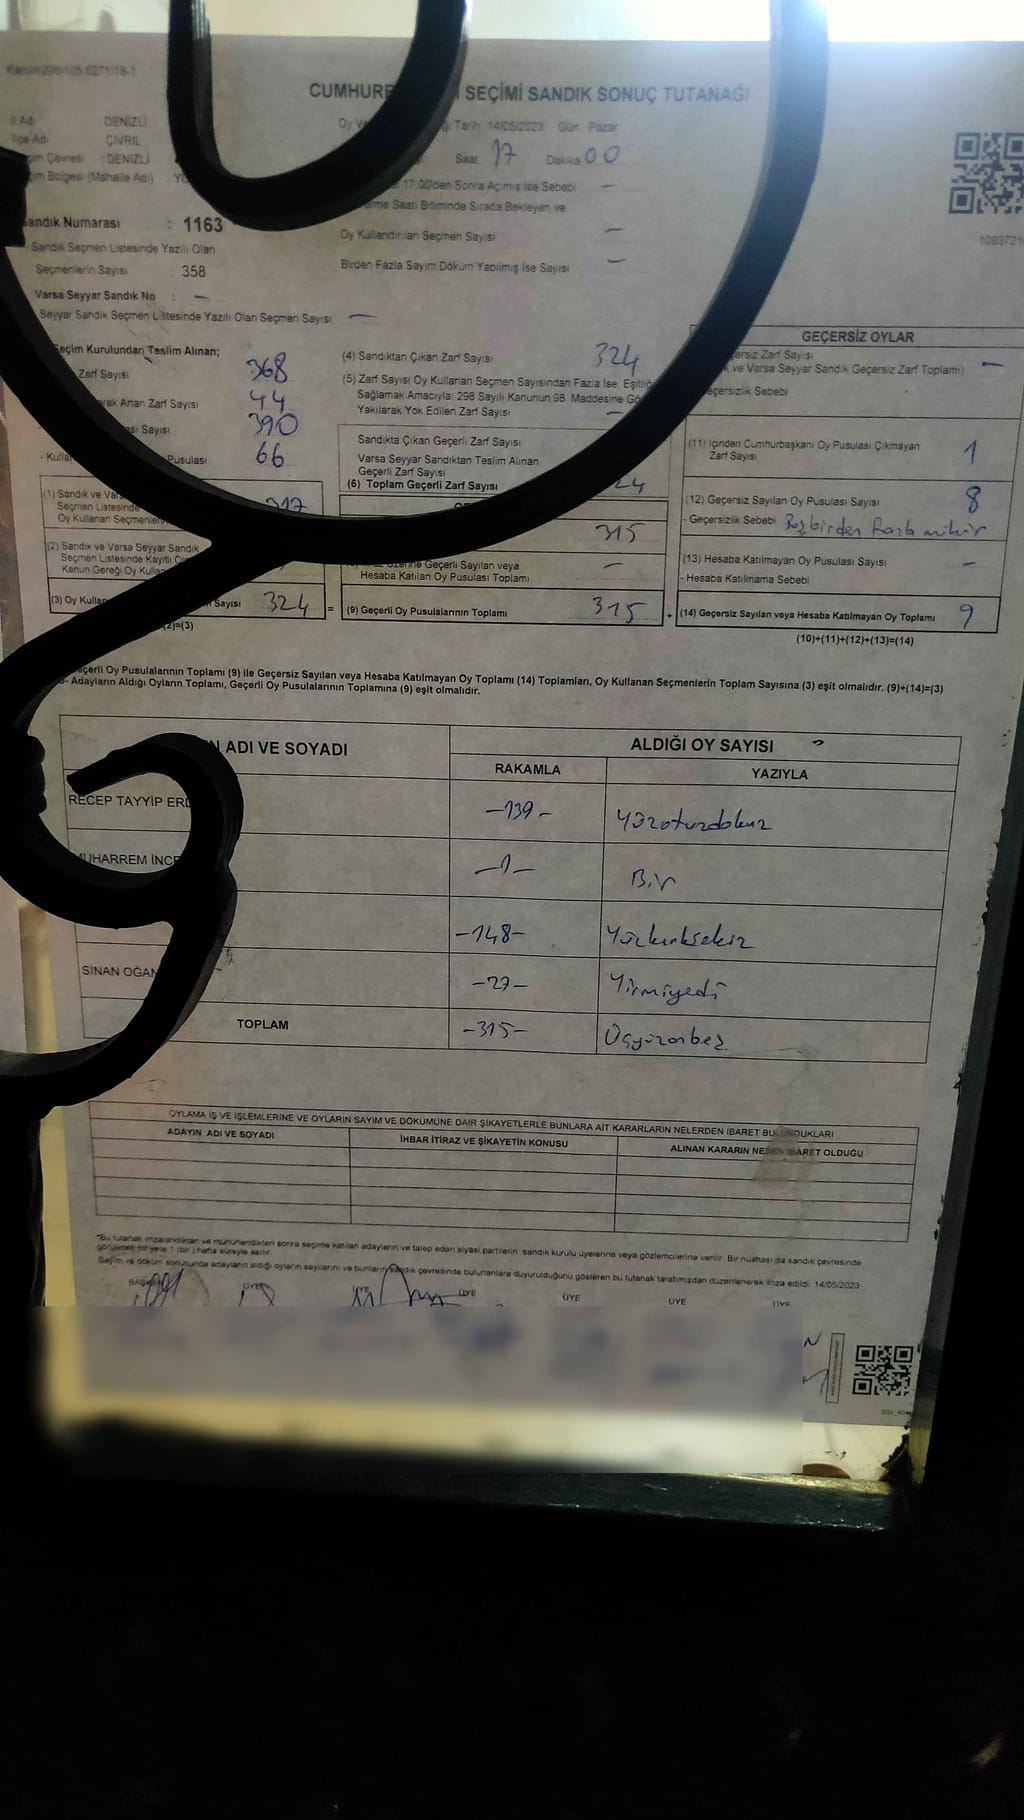 Kanun:298/105.6271/18-1
CUMHUR SEÇİMİ SANDIK SONUÇ TUTANAĞI
Adı DENİZLİ
İlçe Adı ÇİVRİL
Çevresi : DENİZLİ
Bölgesi (Mahalle Adı)
Oy Tarih 14/05/2023 Gün Pazar
Saat 17 Dakika 00
17:00'den Sonra Açımış İse Sebebi —
Saati Bitiminde Sırada Bekleyen ve
Oy Kullandırılan Seçmen Sayısı —
Birden Fazla Sayım Döküm Yapılmış İse Sayısı —
Sandık Numarası : 1163
Sandık Seçmen Listesinde Yazılı Olan
Seçmenlerin Sayısı : 358
Varsa Seyyar Sandık No : —
Seyyar Sandık Seçmen Listesinde Yazılı Olan Seçmen Sayısı —
Seçim Kurulundan Teslim Alınan;
Zarf Sayısı 368
Artan Zarf Sayısı 44
Sayısı 390
Pusulası 66
(1) Sandık ve
Seçmen Listesinde
Oy Kullanan Seçmenlerin 317
(2) Sandık ve Varsa Seyyar Sandık
Seçmen Listesinde Kayıtlı
Kanun Gereği Oy
(3) Oy Sayısı 324 =
(2)=(3)
(4) Sandıktan Çıkan Zarf Sayısı 324
(5) Zarf Sayısı Oy Kullanan Seçmen Sayısından Fazla İse, Eşitliği
Sağlamak Amacıyla: 298 Sayılı Kanunun 98. Maddesine
Yakılarak Yok Edilen Zarf Sayısı —
Sandıkta Çıkan Geçerli Zarf Sayısı
Varsa Seyyar Sandıktan Teslim Alınan
Geçerli Zarf Sayısı
(6) Toplam Geçerli Zarf Sayısı 24
315
Üzerine Geçerli Sayılan veya
Hesaba Katılan Oy Pusulası Toplamı —
(9) Geçerli Oy Pusulalarının Toplamı 315 +
GEÇERSİZ OYLAR
Zarf Sayısı
ve Varsa Seyyar Sandık Geçersiz Zarf Toplamı) —
Geçersizlik Sebebi
(11) İçinden Cumhurbaşkanı Oy Pusulası Çıkmayan
Zarf Sayısı 1
(12) Geçersiz Sayılan Oy Pusulası Sayısı 8
- Geçersizlik Sebebi fazla mühür
(13) Hesaba Katılmayan Oy Pusulası Sayısı —
- Hesaba Katılmama Sebebi
(14) Geçersiz Sayılan veya Hesaba Katılmayan Oy Toplamı 9
(10)+(11)+(12)+(13)=(14)
Geçerli Oy Pusulalarının Toplamı (9) ile Geçersiz Sayılan veya Hesaba Katılmayan Oy Toplamı (14) Toplamları, Oy Kullanan Seçmenlerin Toplam Sayısına (3) eşit olmalıdır. (9)+(14)=(3)
b- Adayların Aldığı Oyların Toplamı, Geçerli Oy Pusulalarının Toplamına (9) eşit olmalıdır.
ADI VE SOYADI
ALDIĞI OY SAYISI
RAKAMLA YAZIYLA
RECEP TAYYİP -139- Yüzotuzdokuz
MUHARREM İNCE -1- Bir
-148- Yüzkırksekiz
SİNAN OĞAN -27- Yirmiyedi
TOPLAM -315- Üçyüzonbeş
OYLAMA İŞ VE İŞLEMLERİNE VE OYLARIN SAYIM VE DÖKÜMÜNE DAİR ŞİKAYETLERLE BUNLARA AİT KARARLARIN NELERDEN İBARET BULUNDUKLARI
ADAYIN ADI VE SOYADI İHBAR İTİRAZ VE ŞİKAYETİN KONUSU ALINAN KARARIN NEDEN İBARET OLDUĞU
*Bu tutanak imzalandıktan ve mühürlendikten sonra seçime katılan adayların ve talep eden siyasi partilerin sandık kurulu üyelerine veya gözlemcilerine verilir. Bir nushası da sandık çevresinde
görülecek bir yere 1 (bir) hafta süreyle asılır.
Sayım ve döküm sonucunda adayların aldığı oyların sayılarını ve bunların sandık çevresinde bulunanlara duyurulduğunu gösteren bu tutanak tarafımızdan düzenlenerek imza edildi. 14/05/2023
BAŞKAN ÜYE ÜYE ÜYE ÜYE ÜYE ÜYE